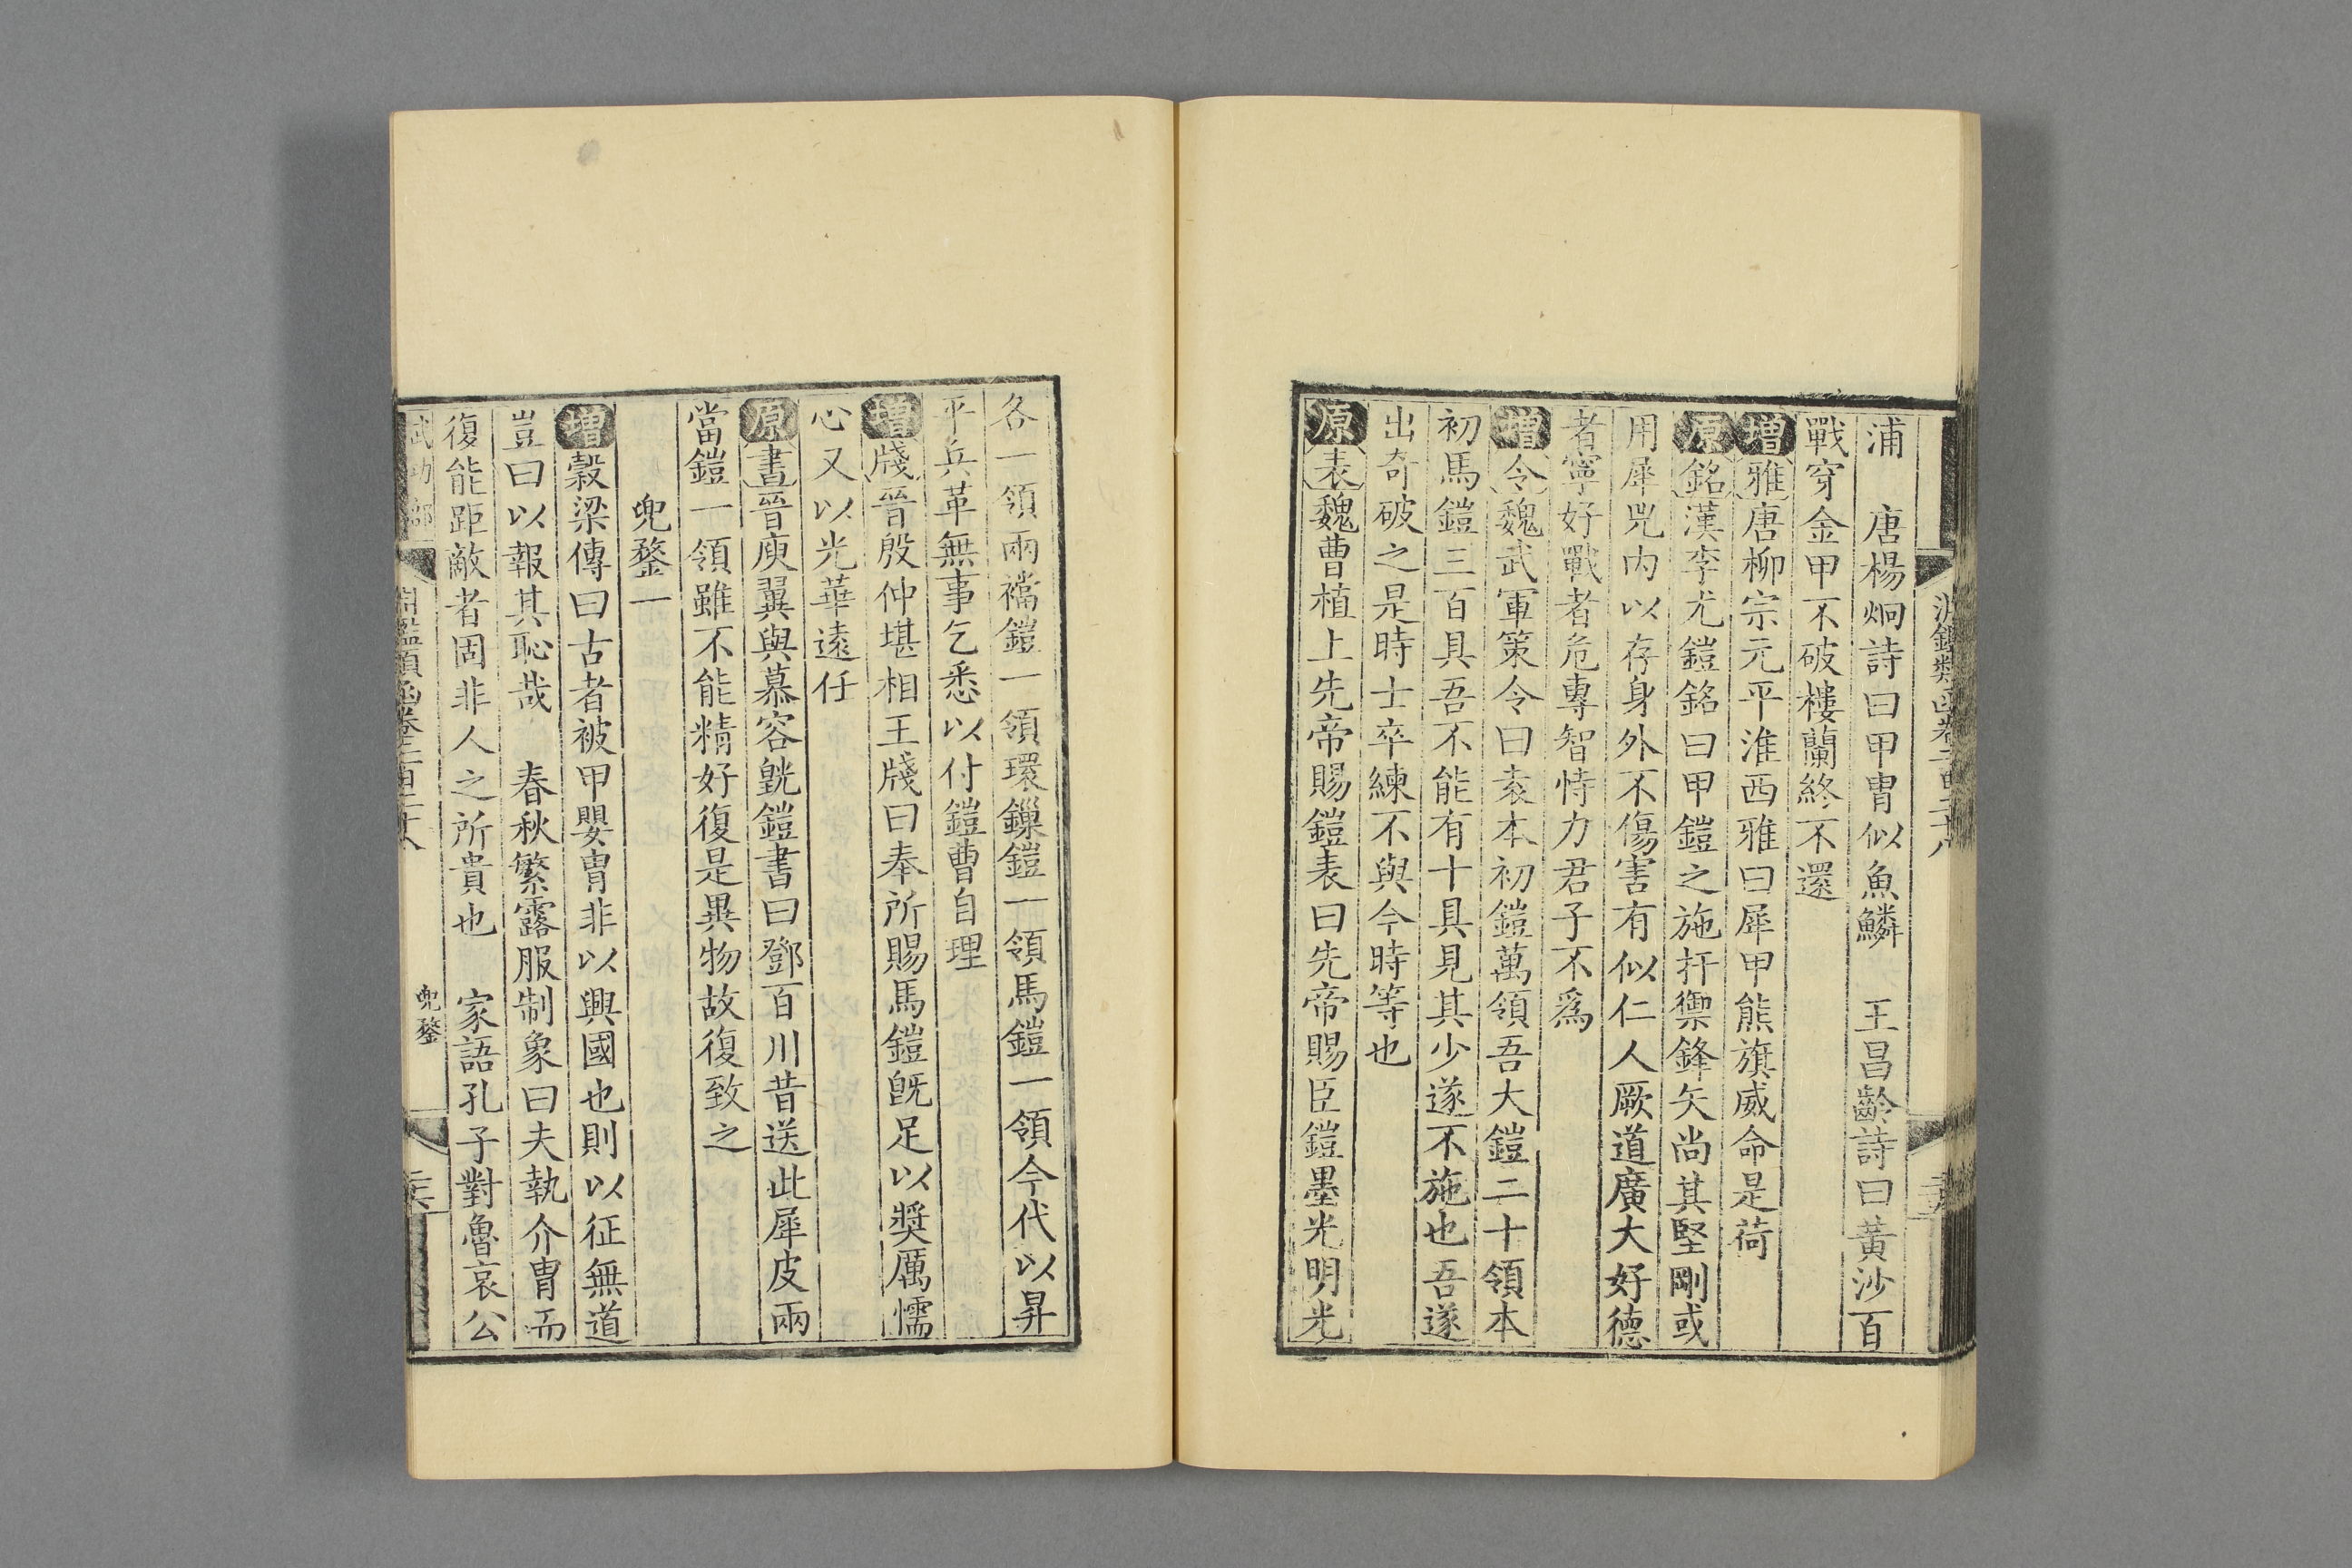 浦　唐楊炯詩曰甲冑似魚鱗　王昌齡詩曰黃沙百
戰穿金甲不破樓蘭終不還
增雅唐柳宗元平淮西雅曰犀甲熊旂威命是荷
原銘漢李尤鎧銘曰甲鎧之施扞禦鋒矢尚其堅剛或
用犀兕内以存身外不傷害有似仁人厥道廣大好德
者寧好戰者危專智恃力君子不爲
增令魏武軍策令曰袁本初鎧萬領吾大鎧二十領本
初馬鎧三百具吾不能有十具見其少遂不施也吾遂
出奇破之是時士卒練不與今時等也
原表魏曹植上先帝賜鎧表曰先帝賜臣鎧墨光明光
各一領兩襠鎧一領環鏁鎧一領馬鎧一領今代以昇
平兵革無事乞悉以付鎧曹自理
增牋晉殷仲堪相王牋曰奉所賜馬鎧旣足以獎厲懦
心又以光華遠任
原書晉庾翼與慕容皝鎧書曰鄧百川昔送此犀皮兩
當鎧一領雖不能精好復是異物故復致之
兜鍪一
增穀梁傳曰古者被甲嬰冑非以興國也則以征無道
豈曰以報其恥哉　春秋繁露服制象曰夫執介冑而
復能距敵者固非人之所貴也　家語孔子對魯哀公
武功部
兜鍪